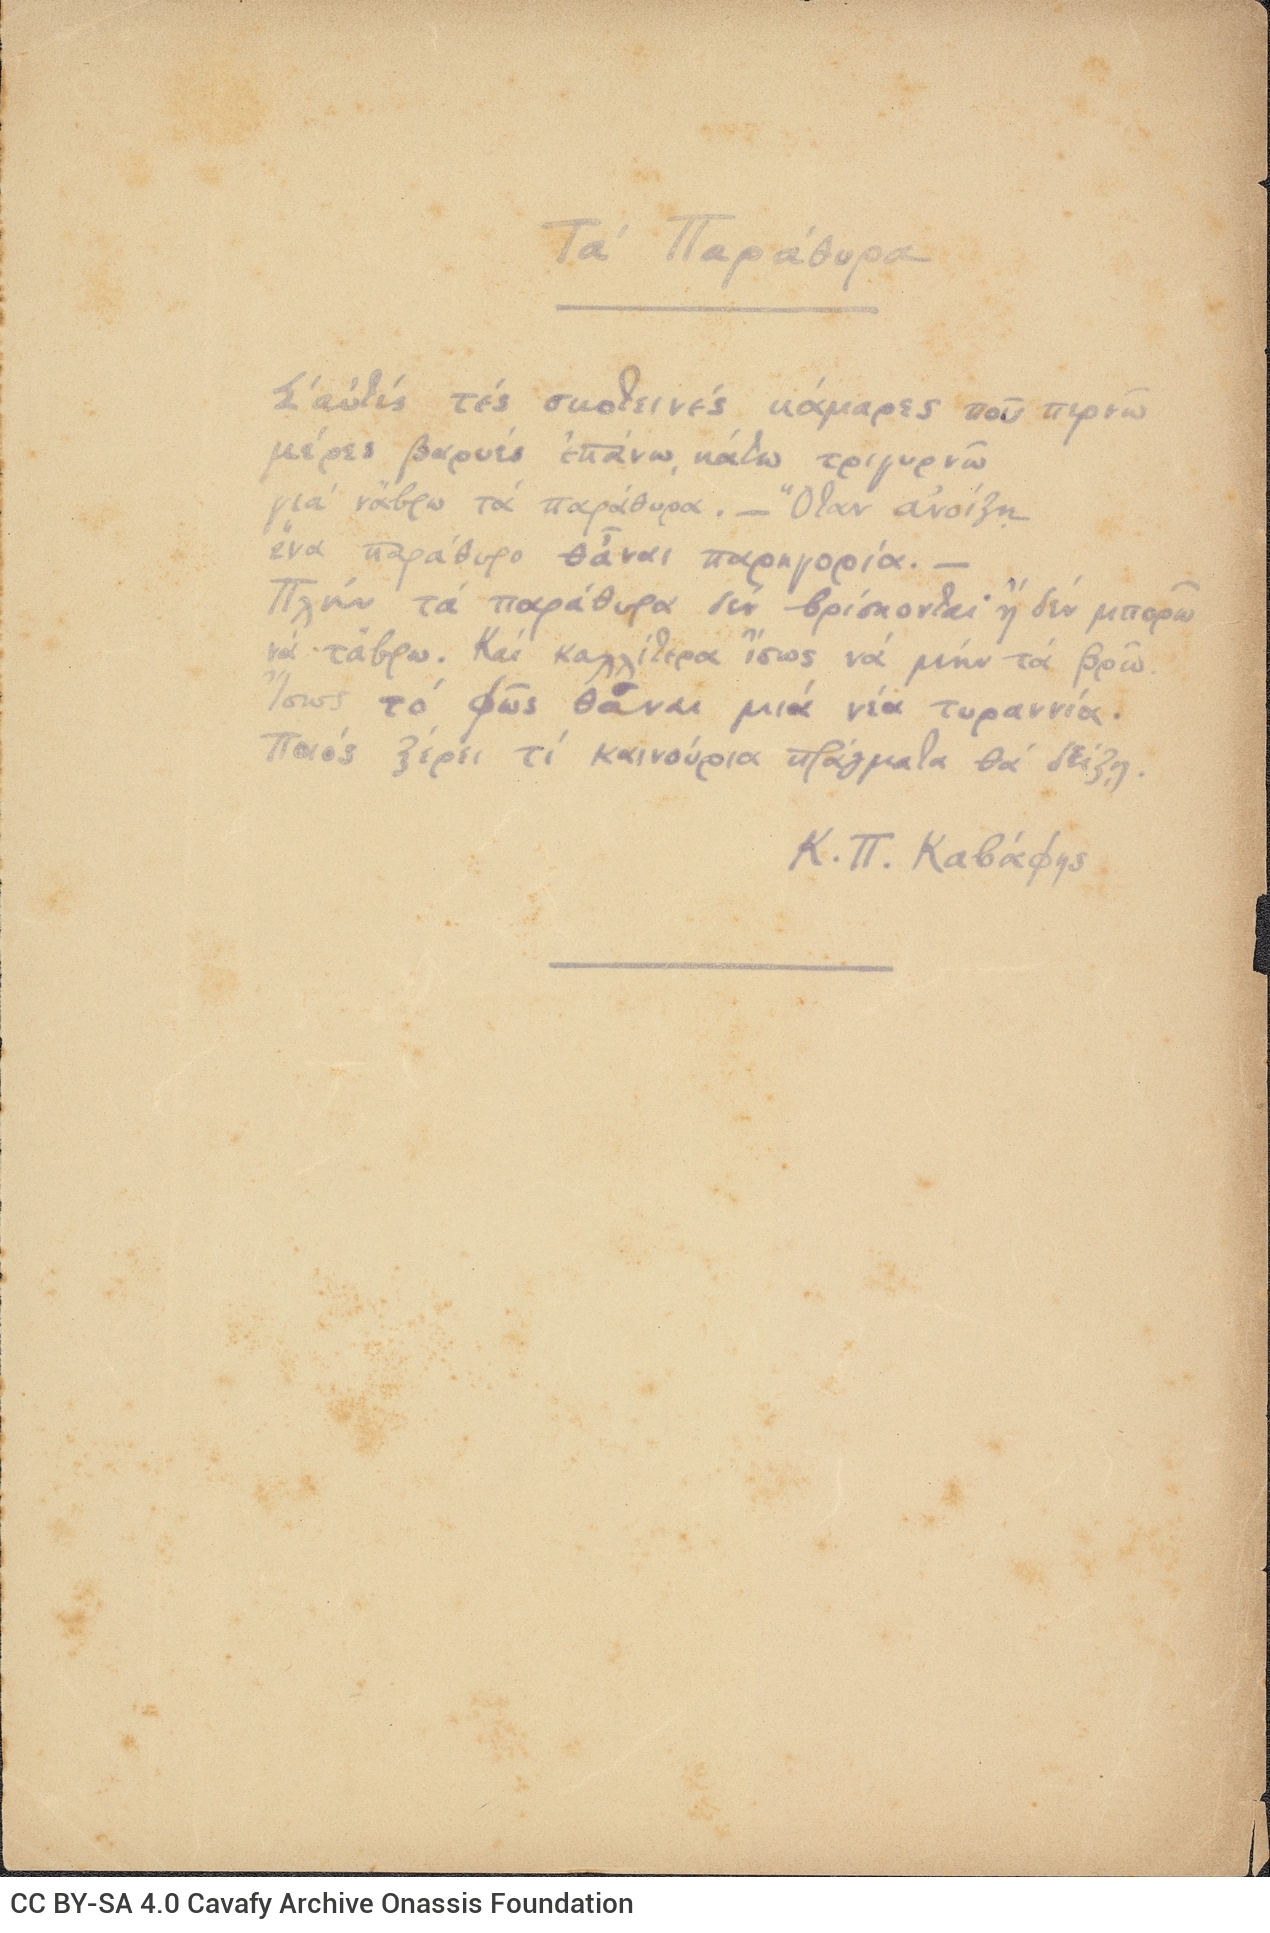 Τά Παράθυρα
Σ' αὐτές τές σκοτεινές κάμαρες ποῦ περνῶ
μέρες βαρυές ἐπάνω, κάτω τριγυρνῶ
γιά νἄβρω τά παράθυρα. — Ὅταν ἀνοίξῃ
ἕνα παράθυρο θἆναι παρηγορία. —
Πλήν τά παράθυρα δέν βρίσκονται· ἤ δέν μπορῶ
νά τἄβρω. Καί καλλίτερα ἴσως νά μήν τά βρῶ.
Ἴσως τό φῶς θἆναι μιά νέα τυραννία.
Ποιός ξέρει τί καινούρια πράγματα θά δείξῃ.
Κ. Π. Καβάφης
CC BY-SA 4.0 Cavafy Archive Onassis Foundation